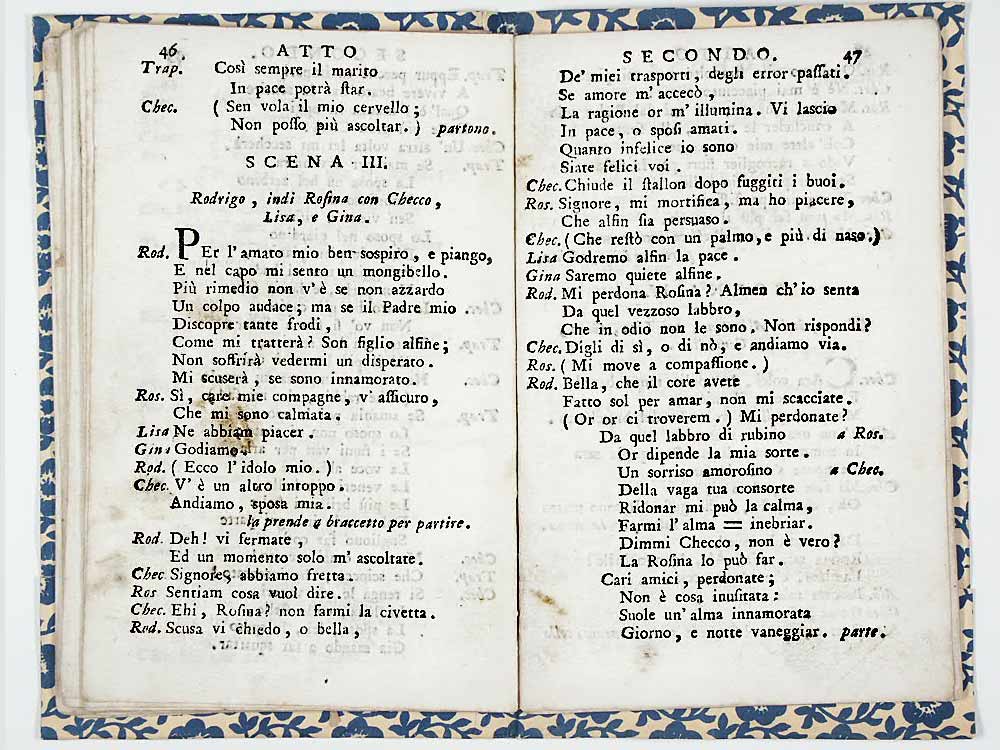 46 ATTO
Trap. Così sempre il marito
In pace potrà star.
Chec. (Sen vola il mio cervello;
Non posso più ascoltar.) partono.
SCENA III.
Rodrigo, indi Rosina con Checco,
Lisa, e Gina.
Rod. PEr l'amato mio ben sospiro, e piango,
E nel capo mi sento un mongibello.
Più rimedio non v'è se non azzardo
Un colpo audace; ma se il Padre mio
Discopre tante frodi,
Come mi tratterà? Son figlio alfine;
Non soffrirà vedermi un disperato.
Mi scuserà, se sono innamorato.
Ros. Sì, care mie compagne, v'assicuro,
Che mi sono calmata.
Lisa Ne abbiam piacer.
Gina Godiamo.
Rod. (Ecco l'idolo mio.)
Chec. V'è un altro intoppo.
Andiamo, sposa mia.
la prende a braccetto per partire.
Rod. Deh! vi fermate,
Ed un momento solo m'ascoltate.
Chec. Signore, abbiamo fretta.
Ros Sentiam cosa vuol dire.
Chec. Ehi, Rosina? non farmi la civetta.
Rod. Scusa vi chiedo, o bella,
SECONDO. 47
De' miei trasporti, degli error passati.
Se amore m'accecò,
La ragione or m'illumina. Vi lascio
In pace, o sposi amati.
Quanto infelice io sono
Siate felici voi.
Chec. Chiude il stallon dopo fuggiti i buoi.
Ros. Signore, mi mortifica, ma ho piacere,
Che alfin sia persuaso.
Chec. (Che restò con un palmo, e più di naso.)
Lisa Godremo alfin la pace.
Gina Saremo quiete alfine.
Rod. Mi perdona Rosina? Almen ch'io senta
Da quel vezzoso labbro,
Che in odio non le sono. Non rispondi?
Chec. Digli di sì, o di nò, e andiamo via.
Ros. (Mi move a compassione.)
Rod. Bella, che il core avete
Fatto sol per amar, non mi scacciate.
(Or or ci troverem.) Mi perdonate?
Da quel labbro di rubino a Ros.
Or dipende la mia sorte.
Un sorriso amorosino a Chec.
Della vaga tua consorte
Ridonar mi può la calma,
Farmi l'alma = inebriar.
Dimmi Checco, non è vero?
La Rosina lo può far.
Cari amici, perdonate;
Non è cosa inusitata:
Suole un'alma innamorata
Giorno, e notte vaneggiar. parte.